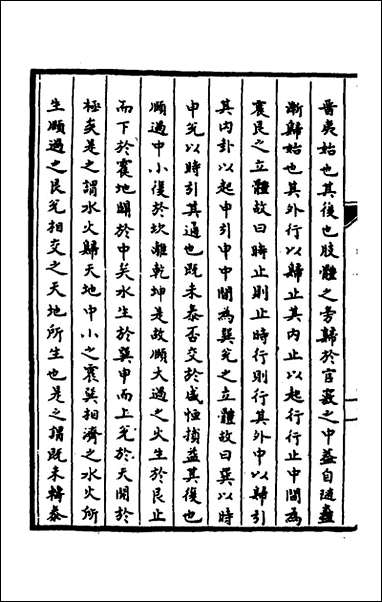 晉夷始也其後也股體之旁歸於官衰之中蓋自隨蠱
漸歸始也其外行以歸止其內止以起行行止中間為
震艮之立體故曰時止則止時行則行其外申以歸引
其內卦以起申引申中間為巽兌之立體故曰巽以時
申兌以時引其通也既未泰否交於咸恒損益其復也
頤過中小復於坎離乾坤是故頤大過之火生於艮止
而下於震地闢於中矣水生於巽申而上兌於天開於
極矣是之謂水火歸天地中小之震巽相濟之水火所
生頤過之艮兌相交之天地所生也是之謂既未轉泰